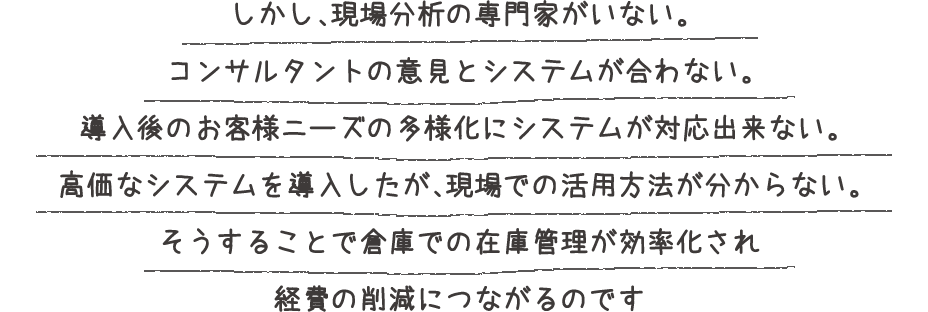 しかし、現場分析の専門家がいない。
コンサルタントの意見とシステムが合わない。
導入後のお客様ニーズの多様化にシステムが対応出来ない。
高価なシステムを導入したが、現場での活用方法が分からない。
そうすることで倉庫での在庫管理が効率化され
経費の削減につながるのです